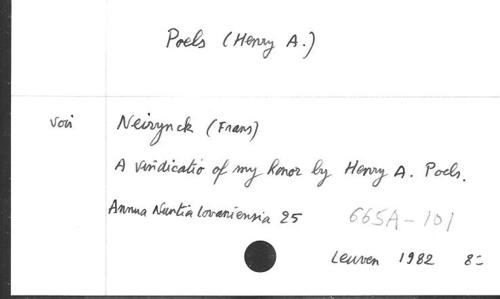 Poels (Henry A.)
voir Neirynck (Frans)
A vindicatio of my honor by Henry A. Poels.
Annua Nuntia Lovaniensia 25 665A-101
Leuven 1982 8=